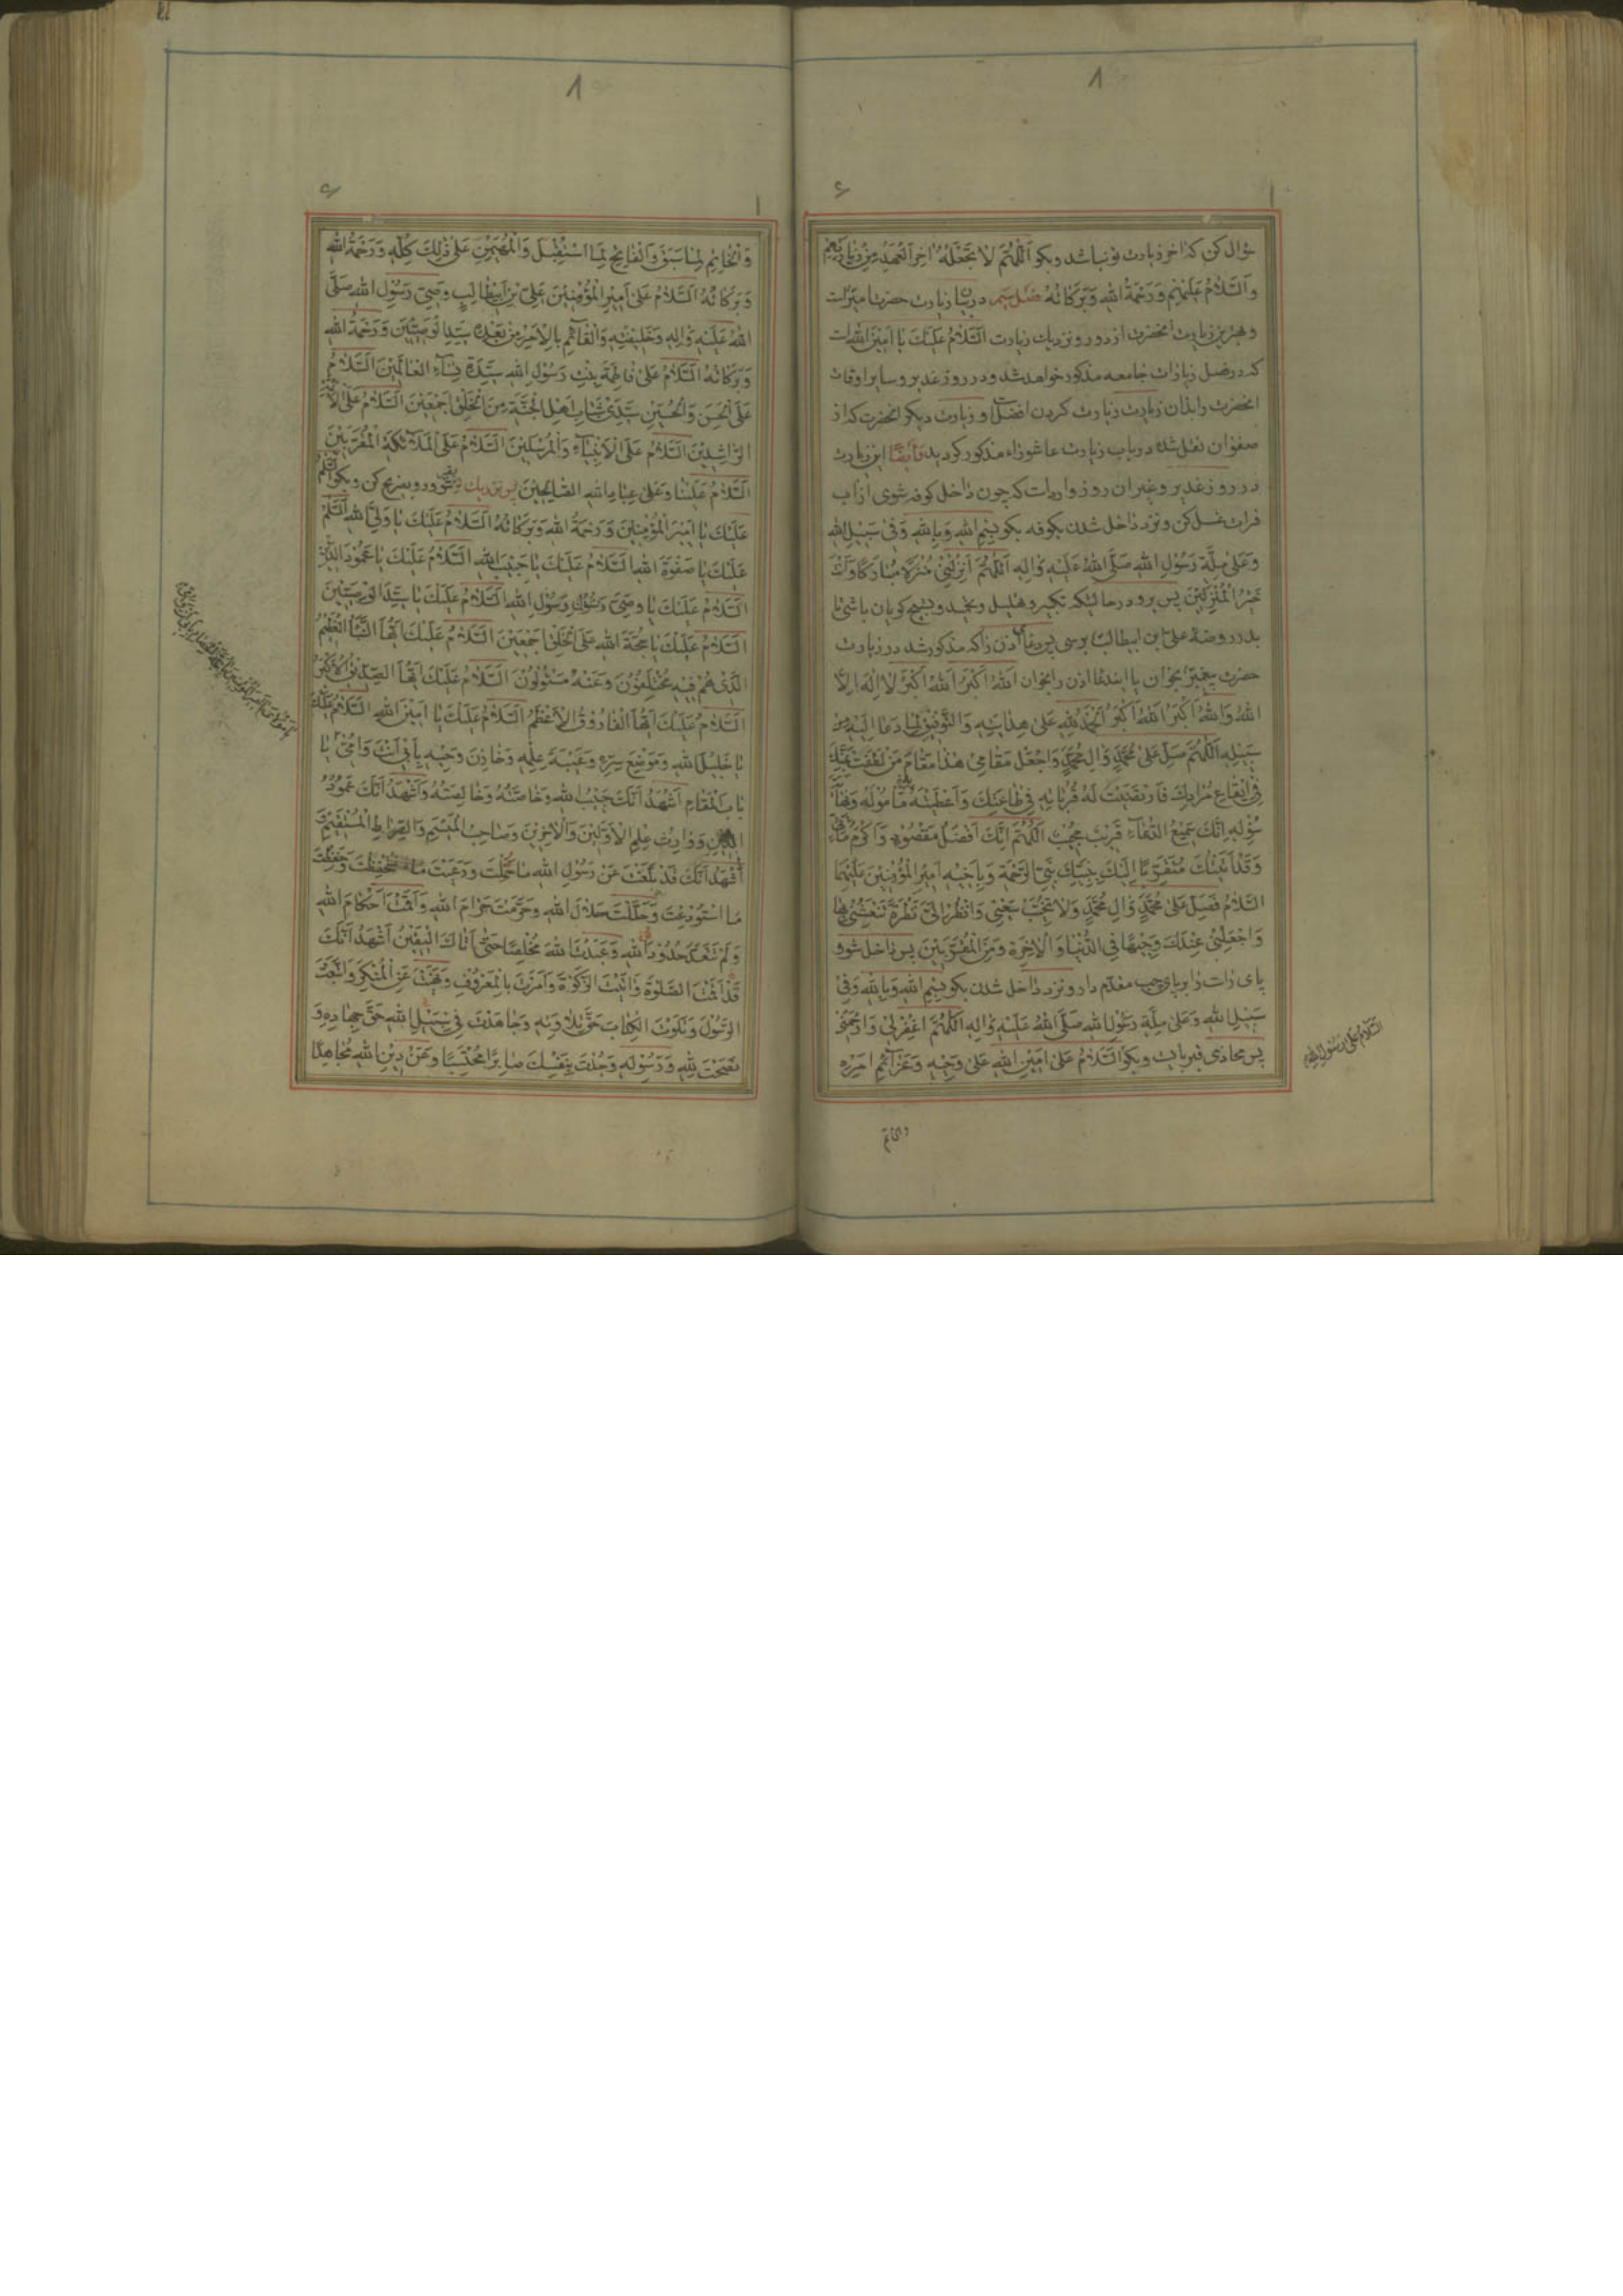 سؤال کن که اخر زیارت تو نباشد و بکو اَللّهُمَّ لا تَجْعَلْهُ اخِرَ الْعَهْدِ مِنْ زِیارَتِهِمْ
وَالسَّلامُ عَلَیْهِمْ وَرَحْمَةُ اللهِ وَبَرَکاتُهُ فصل سیم در بیان زیارت حضرت امیر است
و بهترین زیارت انحضرت از دور و نزدیك زیارت اَلسَّلامُ عَلَیْكَ یا اَمینَ اللهِ است
که در فصل زیارات جامعه مذکور خواهد شد و در روز غدیر و سایر اوقات
انحضرت را بدان زیارت زیارت کردن افضل است و زیارت دیکر انحضرت که از
صفوان نقل شده در باب زیارت عاشوراء مذکور کردید و ایضًا این زیارت
در روز غدیر و غیر ان روز وارد است که چون داخل کوفه شوی از اب
فرات غسل کن و نزد داخل شدن بکوفه بکو بِسْمِ اللهِ وَبِاللهِ وَفی سَبیلِ اللهِ
وَعَلی مِلَّةِ رَسُولِ اللهِ صَلَّی اللهُ عَلَیْهِ وَالِهِ اَللّهُمَّ اَنْزِلْنی مُنْزَلًا مُبارَکًا وَاَنْتَ
خَیْرُ الْمُنْزِلینَ پس برو در حالتیکه تکبیر و تهلیل و تحمید و تسبیح کویان باشی تا
بدر روضه علی ابن ابیطالب برسی پس دعای اذن را که مذکور شد در زیارت
حضرت پیغمبر بخوان یا این دعا اذن را بخوان اَللهُ اَکْبَرُ اَللهُ اَکْبَرُ لا اِلهَ اِلاَّ
اللهُ وَاللهُ اَکْبَرُ اَللهُ اَکْبَرُ اَلْحَمْدُ لِلّهِ عَلی هِدایَتِهِ وَالتَّوْفیقِ لِما دَعا اِلَیْهِ مِنْ
سَبیلِهِ اَللّهُمَّ صَلِّ عَلی مُحَمَّدٍ وَالِ مُحَمَّدٍ وَاجْعَلْ مَقامی هذا مَقامَ مَنْ لَطُفْتَ لَهُ بِمَنِّكَ
فی ایقاعِ مُرادِكَ فَارْتَضَیْتَ لَهُ قُرُباتِهِ فی طاعَتِكَ وَاَعْطَیْتَهُ بِهِ مَأْمُولَهُ وَنِهایَةَ
سُؤْلِهِ اِنَّكَ سَمیعُ الدُّعاءِ قَریبٌ مُجیبٌ اَللّهُمَّ اِنَّكَ اَفْضَلُ مَقْصُودٍ وَاَکْرَمُ مَأْتِیٍّ
وَقَدْ اَتَیْتُكَ مُتَقَرِّبًا اِلَیْكَ بِنَبِیِّكَ نَبِیِّ الرَّحْمَةِ وَبِاَخیهِ اَمیرِ الْمُؤْمِنینَ عَلَیْهِمَا
السَّلامُ فَصَلِّ عَلی مُحَمَّدٍ وَالِ مُحَمَّدٍ وَلا تُخَیِّبْ سَعْیی وَانْظُرْ اِلَیَّ نَظْرَةً تَنْعَشُنی بِها
وَاجْعَلْنی عِنْدَكَ وَجیهًا فِی الدُّنْیا وَالْاخِرَةِ وَمِنَ الْمُقَرَّبینَ پس داخل شو و
پای راست را بر پای چپ مقدم دار و نزد داخل شدن بکو بِسْمِ اللهِ وَبِاللهِ وَفی
سَبیلِ اللهِ وَعَلی مِلَّةِ رَسُولِ اللهِ صَلَّی اللهُ عَلَیْهِ وَالِهِ اَللّهُمَّ اغْفِرْ لی وَارْحَمْنی
پس محاذی قبر بایست و بکو اَلسَّلامُ عَلی اَمینِ اللهِ عَلی وَحْیِهِ وَعَزائِمِ اَمْرِهِ
والخاتم
السلام علی رسول الله
وَالْخاتِمِ لِما سَبَقَ وَالْفاتِحِ لِمَا اسْتُقْبِلَ وَالْمُهَیْمِنِ عَلی ذلِكَ کُلِّهِ وَرَحْمَةُ اللهِ
وَبَرَکاتُهُ اَلسَّلامُ عَلی اَمیرِ الْمُؤْمِنینَ عَلِیِّ بْنِ اَبیطالِبٍ وَصِیِّ رَسُولِ اللهِ صَلَّی
اللهُ عَلَیْهِ وَالِهِ وَخَلیفَتِهِ وَالْقائِمِ بِالْاَمْرِ مِنْ بَعْدِهِ سَیِّدِ الْوَصِیّینَ وَرَحْمَةُ اللهِ
وَبَرَکاتُهُ اَلسَّلامُ عَلی فاطِمَةَ بِنْتِ رَسُولِ اللهِ سَیِّدَةِ نِساءِ الْعالَمینَ اَلسَّلامُ
عَلَی الْحَسَنِ وَالْحُسَیْنِ سَیِّدَیْ شَبابِ اَهْلِ الْجَنَّةِ مِنَ الْخَلْقِ اَجْمَعینَ اَلسَّلامُ عَلَی الْاَئِمَّةِ
الرّاشِدینَ اَلسَّلامُ عَلَی الْاَنْبِیاءِ وَالْمُرْسَلینَ اَلسَّلامُ عَلَی الْمَلائِکَةِ الْمُقَرَّبینَ
اَلسَّلامُ عَلَیْنا وَعَلی عِبادِ اللهِ الصّالِحینَ پس نزدیك قبر شو و رو بضریح کن و بکو اَلسَّلامُ
عَلَیْكَ یا اَمیرَ الْمُؤْمِنینَ وَرَحْمَةُ اللهِ وَبَرَکاتُهُ اَلسَّلامُ عَلَیْكَ یا وَلِیَّ اللهِ اَلسَّلامُ
عَلَیْكَ یا صَفْوَةَ اللهِ اَلسَّلامُ عَلَیْكَ یا حَبیبَ اللهِ اَلسَّلامُ عَلَیْكَ یا عَمُودَ الدّینِ
اَلسَّلامُ عَلَیْكَ یا وَصِیَّ رَسُولِ اللهِ اَلسَّلامُ عَلَیْكَ یا سَیِّدَ الْوَصِیّینَ
اَلسَّلامُ عَلَیْكَ یا حُجَّةَ اللهِ عَلَی الْخَلْقِ اَجْمَعینَ اَلسَّلامُ عَلَیْكَ اَیُّهَا النَّبَأُ الْعَظیمُ
الَّذی هُمْ فیهِ مُخْتَلِفُونَ وَعَنْهُ مَسْئُولُونَ اَلسَّلامُ عَلَیْكَ اَیُّهَا الصِّدّیقُ الْاَکْبَرُ
اَلسَّلامُ عَلَیْكَ اَیُّهَا الْفارُوقُ الْاَعْظَمُ اَلسَّلامُ عَلَیْكَ یا اَمینَ اللهِ اَلسَّلامُ عَلَیْكَ
یا خَلیلَ اللهِ وَمَوْضِعَ سِرِّهِ وَعَیْبَةَ عِلْمِهِ وَخازِنَ وَحْیِهِ بِاَبی اَنْتَ وَاُمّی یا
بابَ الْمَقامِ اَشْهَدُ اَنَّكَ حَبیبُ اللهِ وَخاصَّتُهُ وَخالِصَتُهُ وَاَشْهَدُ اَنَّكَ عَمُودُ
الدّینِ وَوارِثُ عِلْمِ الْاَوَّلینَ وَالْاخِرینَ وَصاحِبُ الْمَیْسَمِ وَالصِّراطِ الْمُسْتَقیمِ
اَشْهَدُ اَنَّكَ قَدْ بَلَّغْتَ عَنْ رَسُولِ اللهِ ما حُمِّلْتَ وَرَعَیْتَ مَا اسْتُحْفِظْتَ وَحَفِظْتَ
مَا اسْتُودِعْتَ وَحَلَّلْتَ حَلالَ اللهِ وَحَرَّمْتَ حَرامَ اللهِ وَاَقَمْتَ اَحْکامَ اللهِ
وَلَمْ تَتَعَدَّ حُدُودَ اللهِ وَعَبَدْتَ اللهَ مُخْلِصًا حَتّی اَتاكَ الْیَقینُ اَشْهَدُ اَنَّكَ
قَدْ اَقَمْتَ الصَّلوةَ وَاتَیْتَ الزَّکوةَ وَاَمَرْتَ بِالْمَعْرُوفِ وَنَهَیْتَ عَنِ الْمُنْکَرِ وَاتَّبَعْتَ
الرَّسُولَ وَتَلَوْتَ الْکِتابَ حَقَّ تِلاوَتِهِ وَجاهَدْتَ فی سَبیلِ اللهِ حَقَّ جِهادِهِ وَ
نَصَحْتَ لِلّهِ وَرَسُولِهِ وَجُدْتَ بِنَفْسِكَ صابِرًا مُحْتَسِبًا وَعَنْ دینِ اللهِ مُجاهِدًا